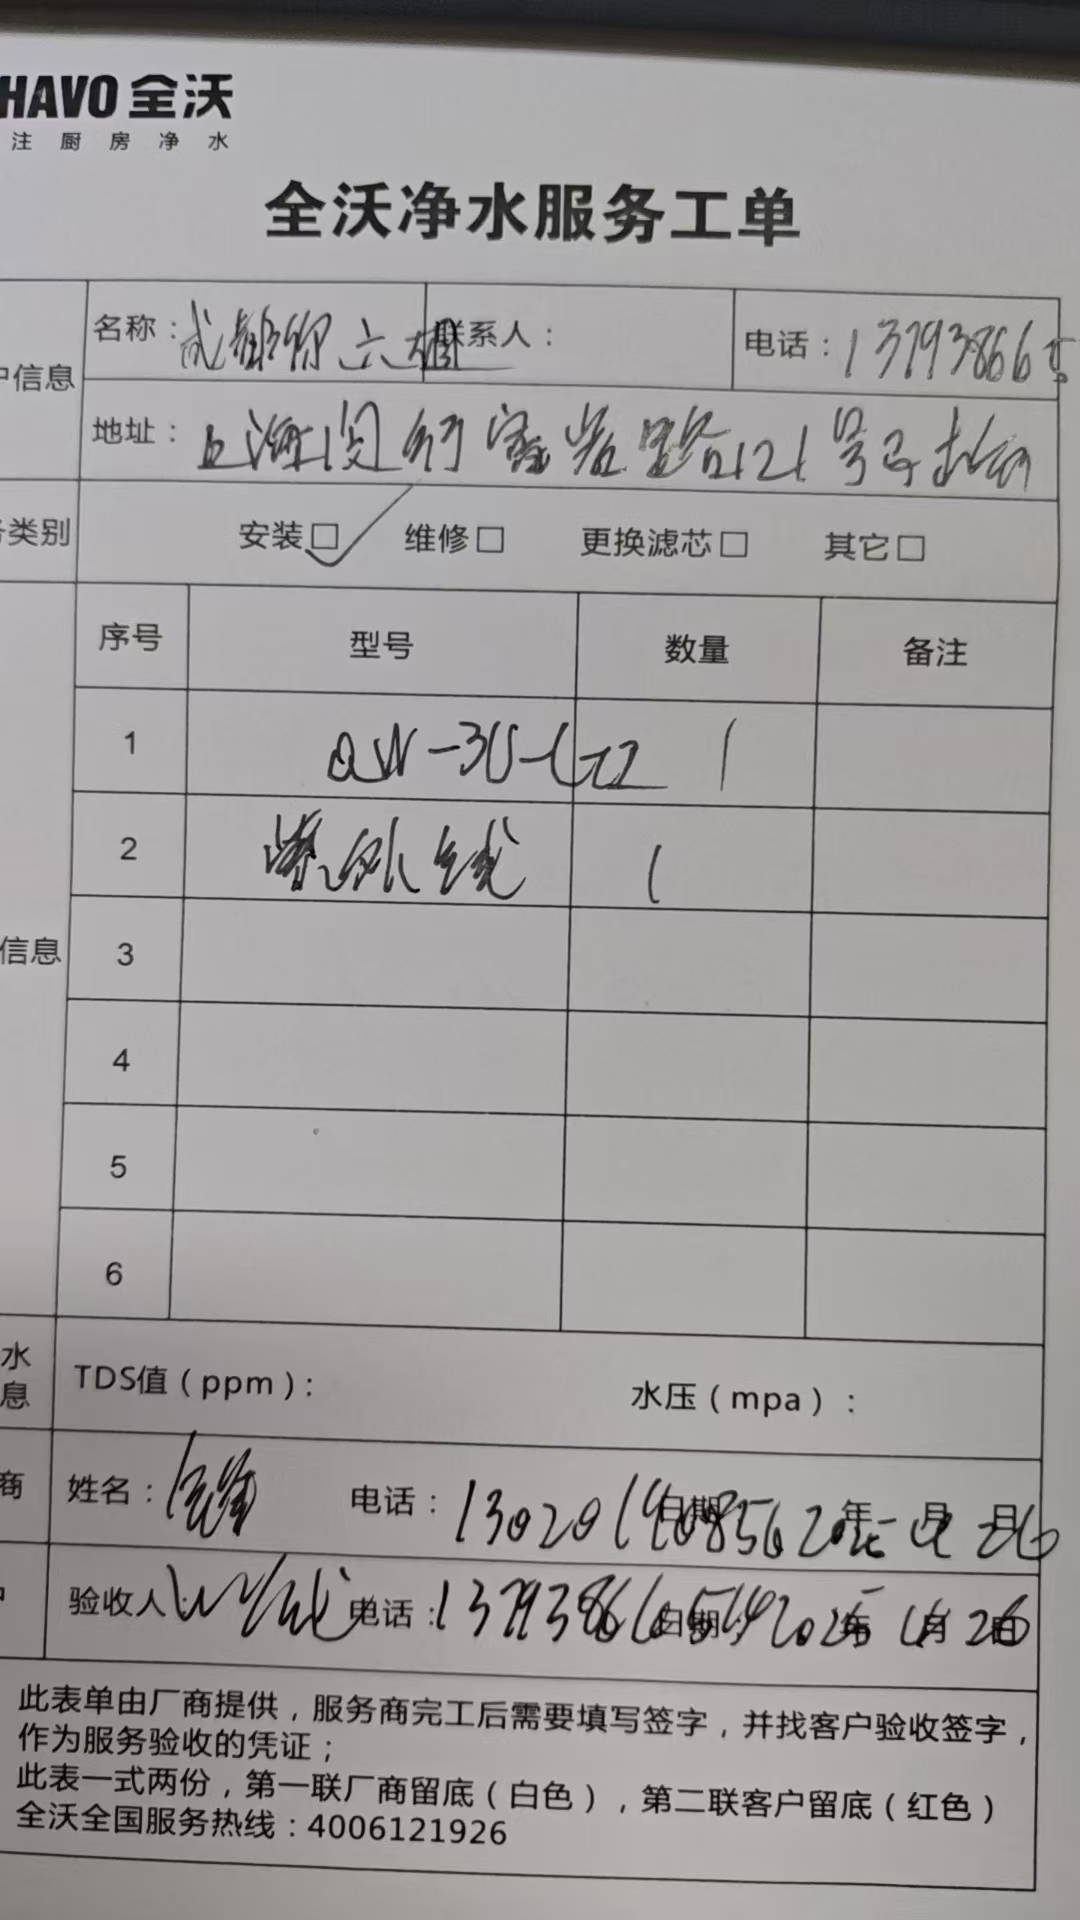 HAVO 全沃
注厨房净水
全沃净水服务工单
户信息
名称：成都你六姐
联系人：
电话：137938665
地址：上海闵行 路121号
务类别
安装☑ 维修□ 更换滤芯□ 其它□
序号 型号 数量 备注
1 QW-3U-G2 1
2 紫外线 1
信息 3
4
5
6
水
息
TDS值（ppm）： 水压（mpa）：
商
姓名： 电话：13020140856 日期 年 月 26
验收人 电话：13793866514 日期：2025年 月26日
此表单由厂商提供，服务商完工后需要填写签字，并找客户验收签字，
作为服务验收的凭证；
此表一式两份，第一联厂商留底（白色），第二联客户留底（红色）
全沃全国服务热线：4006121926